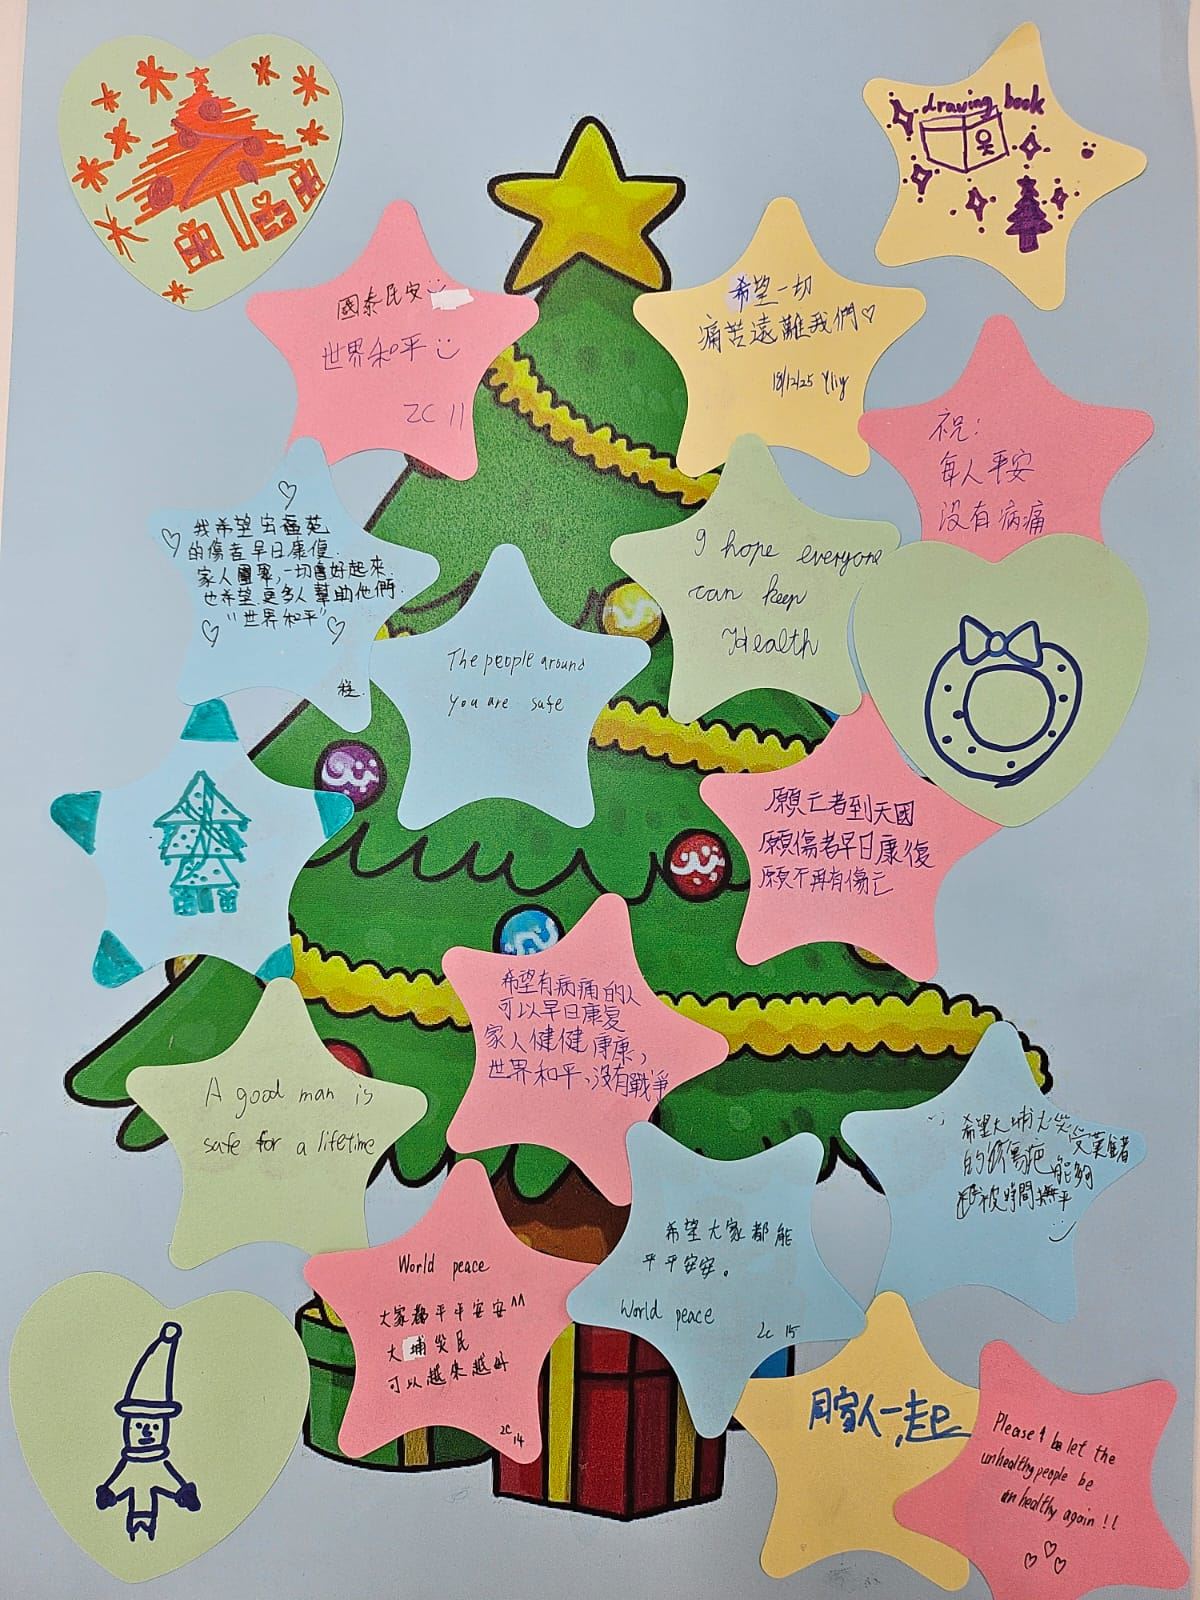 drawing book
國泰民安
世界和平
2C 11
希望一切
痛苦遠難我們♡
18/12/25 Yiiy
祝:
每人平安
沒有病痛
我希望宏福苑
的傷者早日康復.
家人團聚,一切會好起來.
也希望更多人幫助他們.
"世界和平"
I hope everyone
can keep
Health
The people around
you are safe
願亡者到天國
願傷者早日康復
願不再有傷亡
希望有病痛的人
可以早日康复
家人健健康康,
世界和平、沒有戰爭
A good man is
safe for a lifetime
希望大埔火災受
的傷疤能夠
被時間撫平
World peace
大家都平平安安^^
大埔災民
可以越來越好
2C
14
希望大家都能
平平安安。
World peace
2c 15
家人一起
Please let the
unhealthy people be
healthy again !!